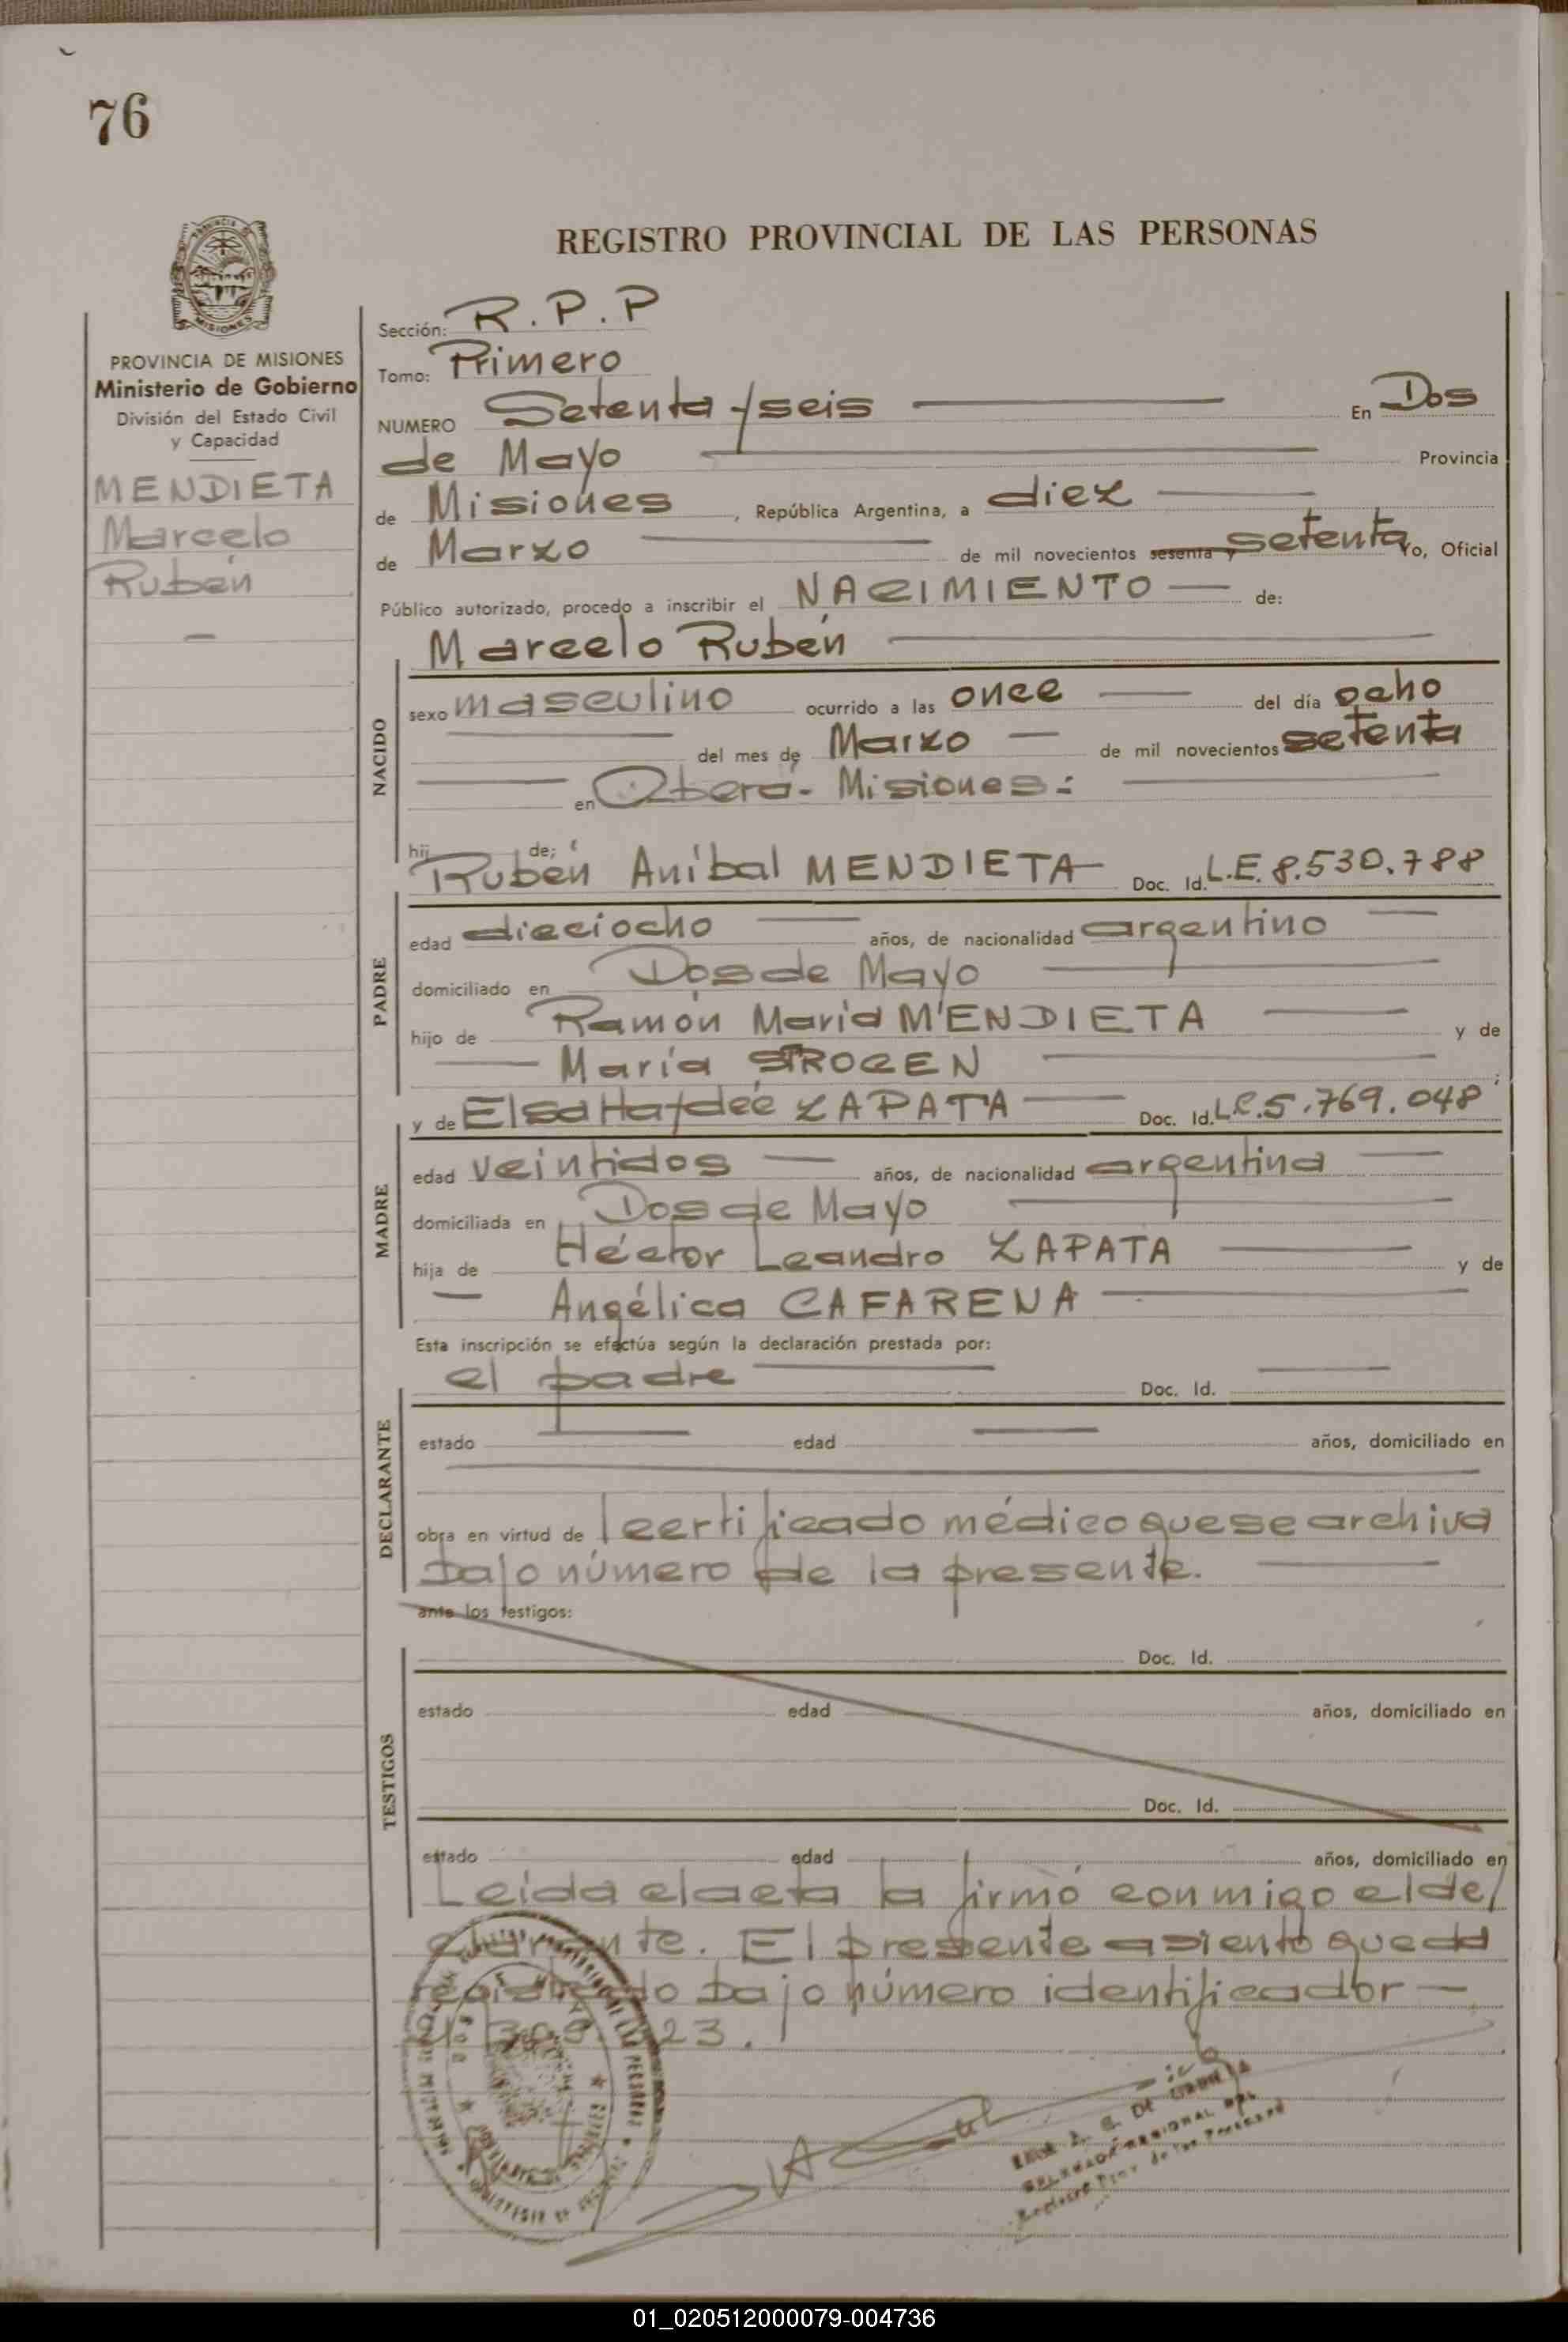 76
REGISTRO PROVINCIAL DE LAS PERSONAS
PROVINCIA DE MISIONES
Ministerio de Gobierno
División del Estado Civil
y Capacidad
MENDIETA
Marcelo
Rubén
Sección: R.P.P
Tomo: Primero
NUMERO Setenta y seis En Dos
de Mayo Provincia
de Misiones, República Argentina, a diez
de Marzo de mil novecientos sesenta y setenta Yo, Oficial
Público autorizado, procedo a inscribir el NACIMIENTO de:
Marcelo Rubén
NACIDO
sexo masculino ocurrido a las once del día ocho
del mes de Marzo de mil novecientos setenta
en Oberá - Misiones:
hij de;
Rubén Aníbal MENDIETA Doc. Id. L.E. 8.530.788
PADRE
edad dieciocho años, de nacionalidad argentino
domiciliado en Dos de Mayo
hijo de Ramón María MENDIETA y de
María STROCEN
y de Elsa Haydeé ZAPATA Doc. Id. L.C. 5.769.048
MADRE
edad veintidos años, de nacionalidad argentina
domiciliada en Dos de Mayo
hija de Héctor Leandro ZAPATA y de
Angélica CAFARENA
Esta inscripción se efectúa según la declaración prestada por:
el padre Doc. Id.
DECLARANTE
estado edad años, domiciliado en
obra en virtud de l certificado médico que se archiva
bajo número de la presente.
ante los testigos:
Doc. Id.
TESTIGOS
estado edad años, domiciliado en
Doc. Id.
estado edad años, domiciliado en
Leída el acta la firmó conmigo el de/
clarante. El presente asiento queda
registrado bajo número identificador
23.
01_020512000079-004736